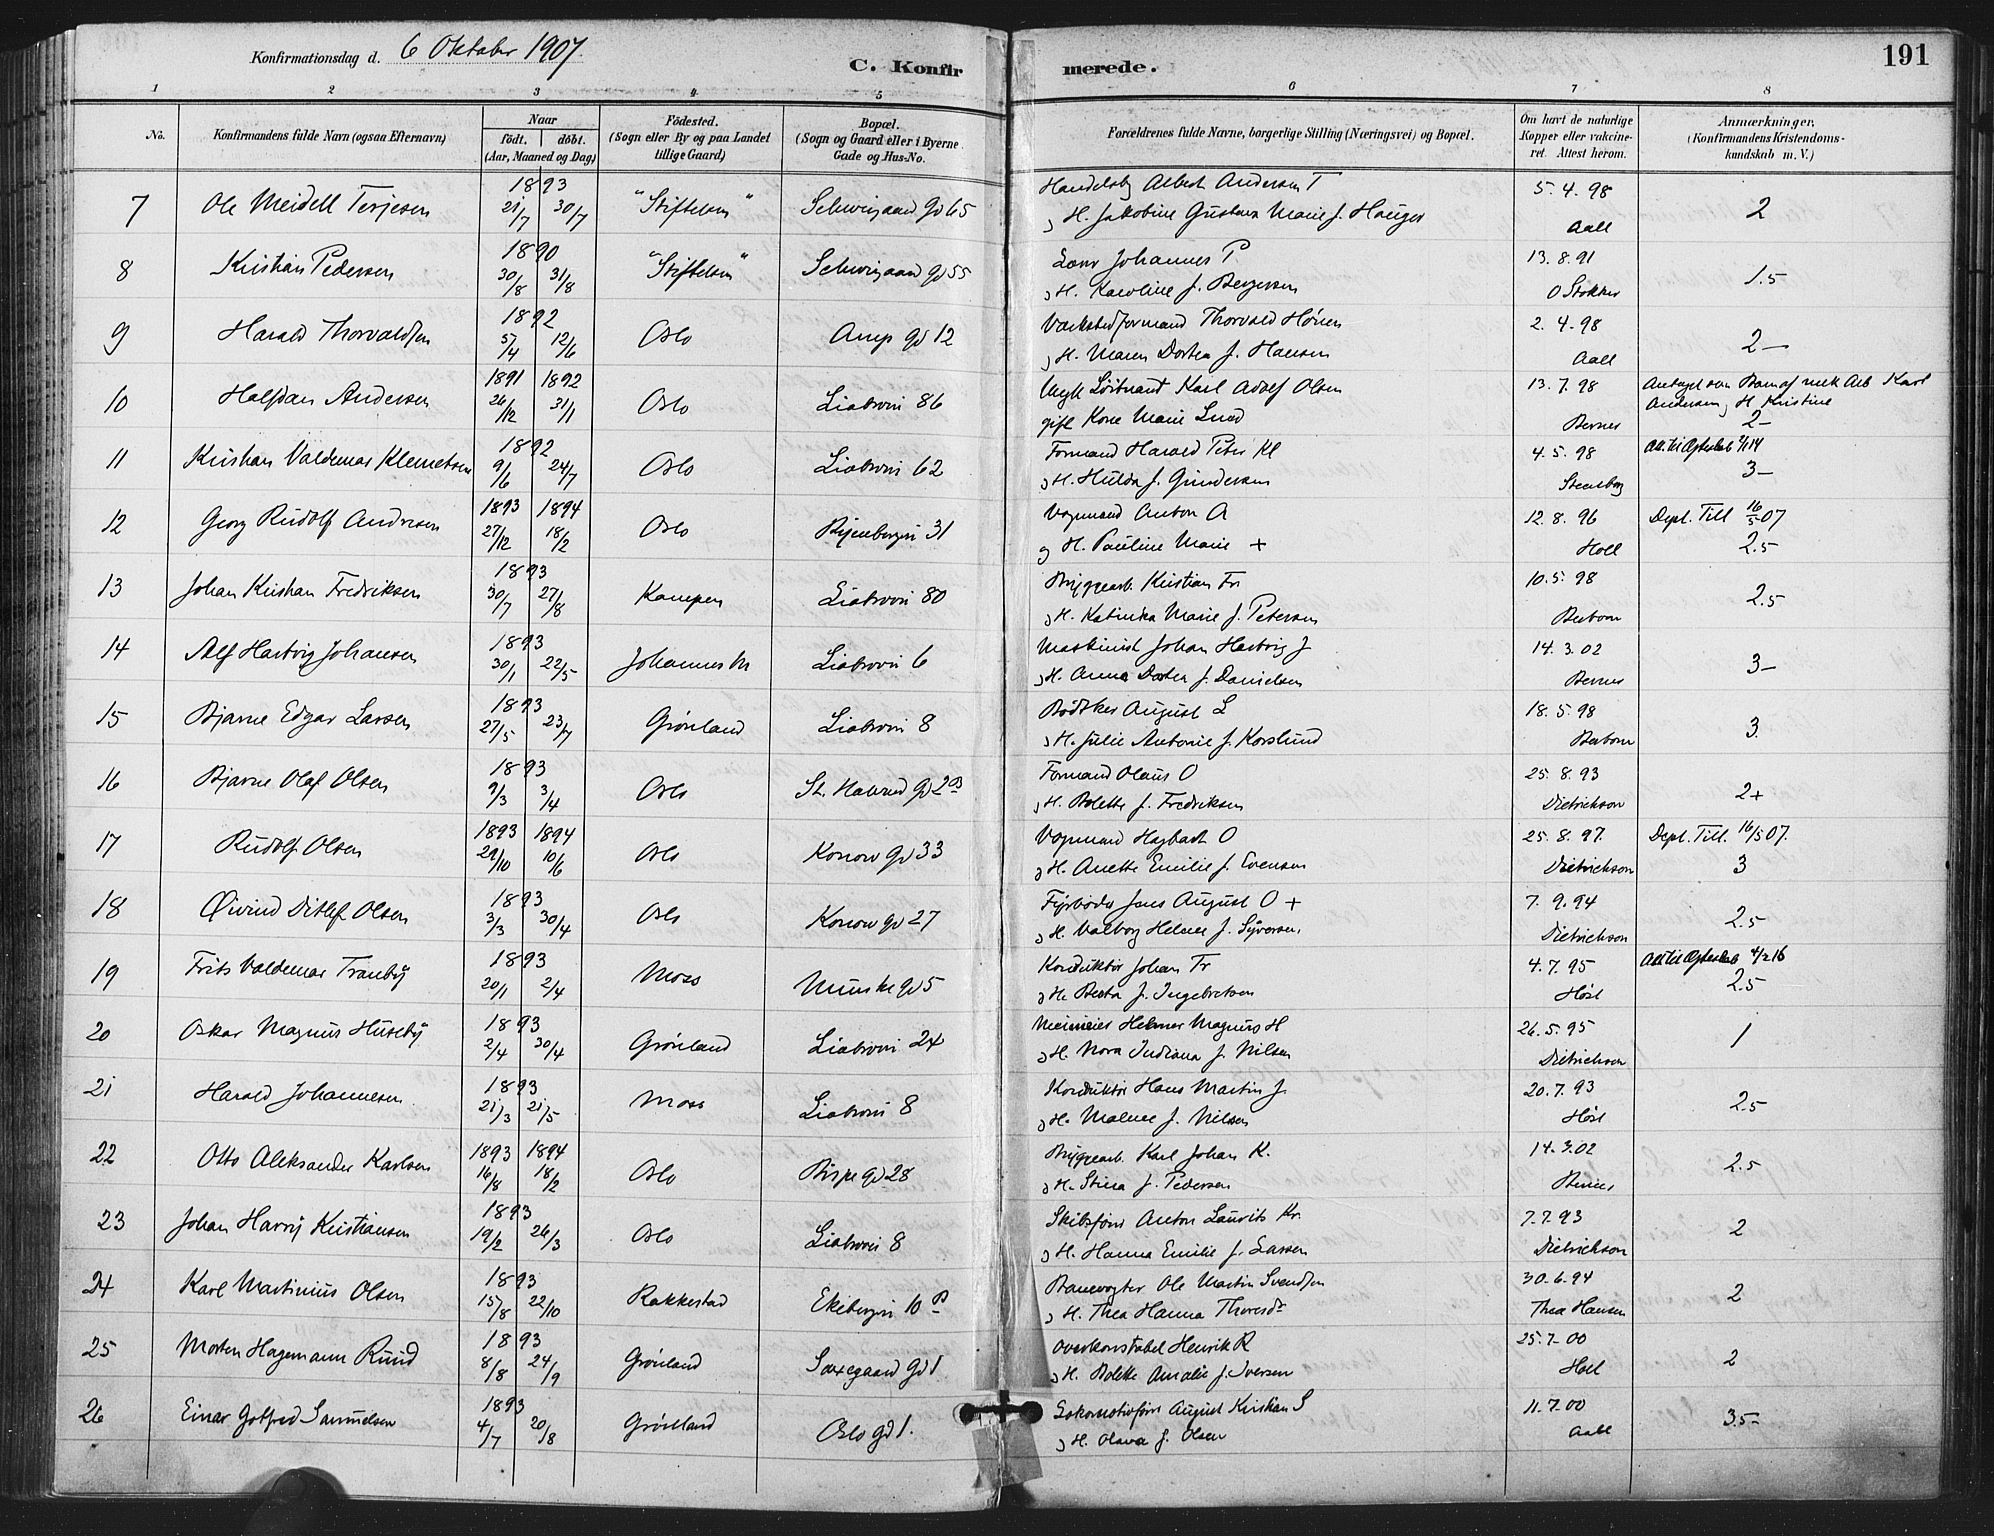 Konfirmationsdag d. 6 Oktober 1907.
C. Konfirmerede.
191
1 2 3 4 5 6 7 8
No.
Konfirmandens fulde Navn (ogsaa Efternavn)
Naar
født. | døbt.
(Aar, Maaned og Dag)
Fødested.
(Sogn eller By og paa Landet
tillige Gaard)
Bopæl.
(Sogn og Gaard eller i Byerne
Gade og Hus-No.
Forældrenes fulde Navne, borgerlige Stilling (Næringsvei) og Bopæl.
Om havt de naturlige
Kopper eller vakcine-
ret. Attest herom.
Anmærkninger,
(Konfirmandens Kristendoms-
kundskab m. V.)
7 Ole Meidell Terjesen 1893 21/7 30/7 "Stiftelsen" Schweigaard gd 65 Albert Andersen T 5.4.98
og H. Jakobine Gustava Marie f. Hauger Aall 2
8 Kristian Pedersen 1890 30/8 31/8 "Stiftelsen" Schweigaard gd 55 Johannes P 13.8.91
og H. Karoline f. Bergersen O Stokker 1.5
9 Harald Thorvaldsen 1892 5/4 12/6 Oslo Arups gd 12 Værkstedformand Thorvald 2.4.98
og H. Maren Dortea f. Hansen Aall 2—
10 Halfdan Andersen 1891 1892 26/12 31/1 Oslo Liabrovn 86 Ungk Løitnant Karl Adolf Olsen 13.7.98 Antaget som Barn af Karl
gift Kone Marie Lund Berner Andersen og H. Kristine
2—
11 Kristian Valdemar Klemetsen 1892 9/6 24/7 Oslo Liabrovn 62 Formand Harald Peter Kl 4.5.98
og H. Hulda f. Gundersen Steensberg 3—
12 Georg Rudolf Andresen 1893 1894 27/12 18/2 Oslo 31 Vognmand Anton A 12.8.96 Dept. Till 16/5 07
og H. Pauline Marie + Holl 2.5
13 Johan Kristian Fredriksen 1893 30/7 27/8 Kampen Liabrovn 80 Bryggearb. Kristian Fr 10.5.98
og H. Katinka Marie f. Petersen 2.5
14 Alf Hartvig Johansen 1893 30/1 22/5 Johannes M Liabrovn 6 Maskinist Johan Hartvig J 14.3.02
og H. Anna Dortea f. Danielsen Berner 3—
15 Bjarne Edgar Larsen 1893 27/5 23/7 Grønland Liabrovn 8 Bødker August L 18.5.98
og H. Julie Antonie f. Korslund 3.
16 Bjarne Olaf Olsen 1893 9/3 3/4 Oslo St. Halvard gd 2 Formand Olaus O 25.8.93
og H. Bolette f. Fredriksen Dietrichson 2+
17 Rudolf Olsen 1893 1894 29/10 10/6 Oslo Konow gd 33 Vognmand Hagbart O 25.8.97. Dept. Till. 16/5 07.
og H. Anette Emilie f. Evensen Dietrichson 3
18 Øivind Ditlef Olsen 1893 3/3 30/4 Oslo Konow gd 27 Fyrbøder Jens August O + 7.9.94
og H. Valborg Helene f. Syversen. Dietrichson 2.5
19 Frits Valdemar Tranby 1893 20/1 2/4 Moss Munke gd 5 Konduktør Johan Tr 4.7.95
og H. Berta f. Ingebretsen Høst 2.5
20 Oskar Magnus Huseby 1893 2/4 30/4 Grønland Liabrovn 24 Helmer Magnus H 26.5.95
og H. Nora Indiana f. Nilsen Dietrichson 1
21 Harald Johannesen 1893 21/3 21/5 Moss Liabrovn 8 Konduktør Hans Martin J. 20.7.93
og H. Malene f. Nilsen Høst 2.5
22 Otto Aleksander Karlsen 1893 1894 16/8 18/2 Oslo Bispe gd 28 Bryggearb. Karl Johan K. 14.3.02
og H. Stina f. Pedersen Berner 2.5
23 Johan Harry Kristiansen 1893 19/2 26/3 Oslo Liabrovn 8 Skibsfører Anton Laurits Kr. 7.7.93
og H. Hanna Emilie f. Larsen Dietrichson 2
24 Karl Martinius Olsen 1893 15/8 22/10 Rakkestad Ekebergvn 10 B Banevogter Ole Martin Svendsen 30.6.94
og H. Thea Hanna Thoresdr Thea Hansen 2
25 Morten Hagemann Ruud 1893 8/8 24/9 Grønland Saxegaard gd 1 Overkonstabel Henrik R 25.7.00
og H. Bolette Amalie f. Iversen Holl 2
26 Einar Gotfred Samuelsen 1893 4/7 20/8 Grønland Oslo gd 1. Lokomotivfører August Kristian S 11.7.00
og H. Olava f. Olsen Aall 3.5-